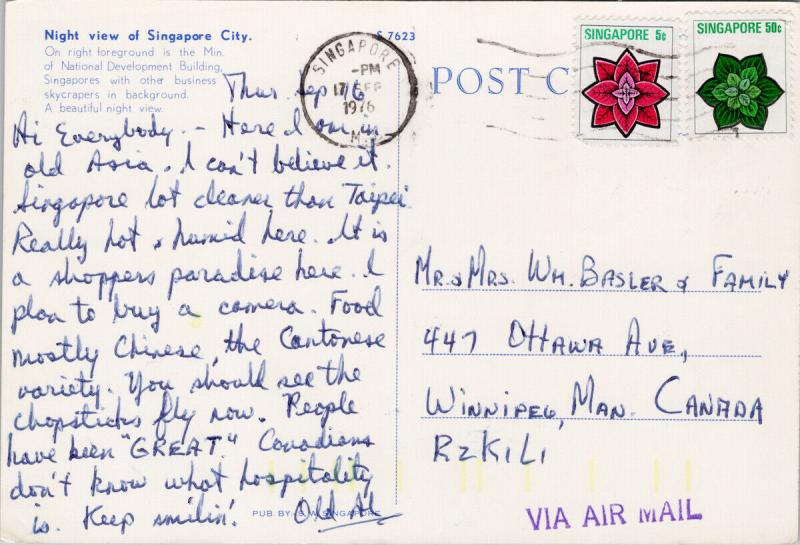 Night view of Singapore City.
On right foreground is the Min.
of National Development Building,
Singapores with other business
skycrapers in background.
A beautiful night view.
S 7623
SINGAPORE
-PM
17 SEP
1976
POST C
SINGAPORE 5¢
SINGAPORE 50¢
Thur. Sep 16
Hi Everybody. - Here I am in
old Asia. I can't believe it.
Singapore lot cleaner than Taipei
Really hot & humid here. It is
a shoppers paradise here. I
plan to buy a camera. Food
mostly Chinese, the Cantonese
variety. You should see the
chopsticks fly now. People
have been "GREAT." Canadians
don't know what hospitality
is. Keep smilin'. Old Al
PUB. BY: S.W. SINGAPORE
Mr. & Mrs. Wm. Basler & Family
447 Ottawa Ave.,
Winnipeg, Man. Canada
R2K1L1
VIA AIR MAIL